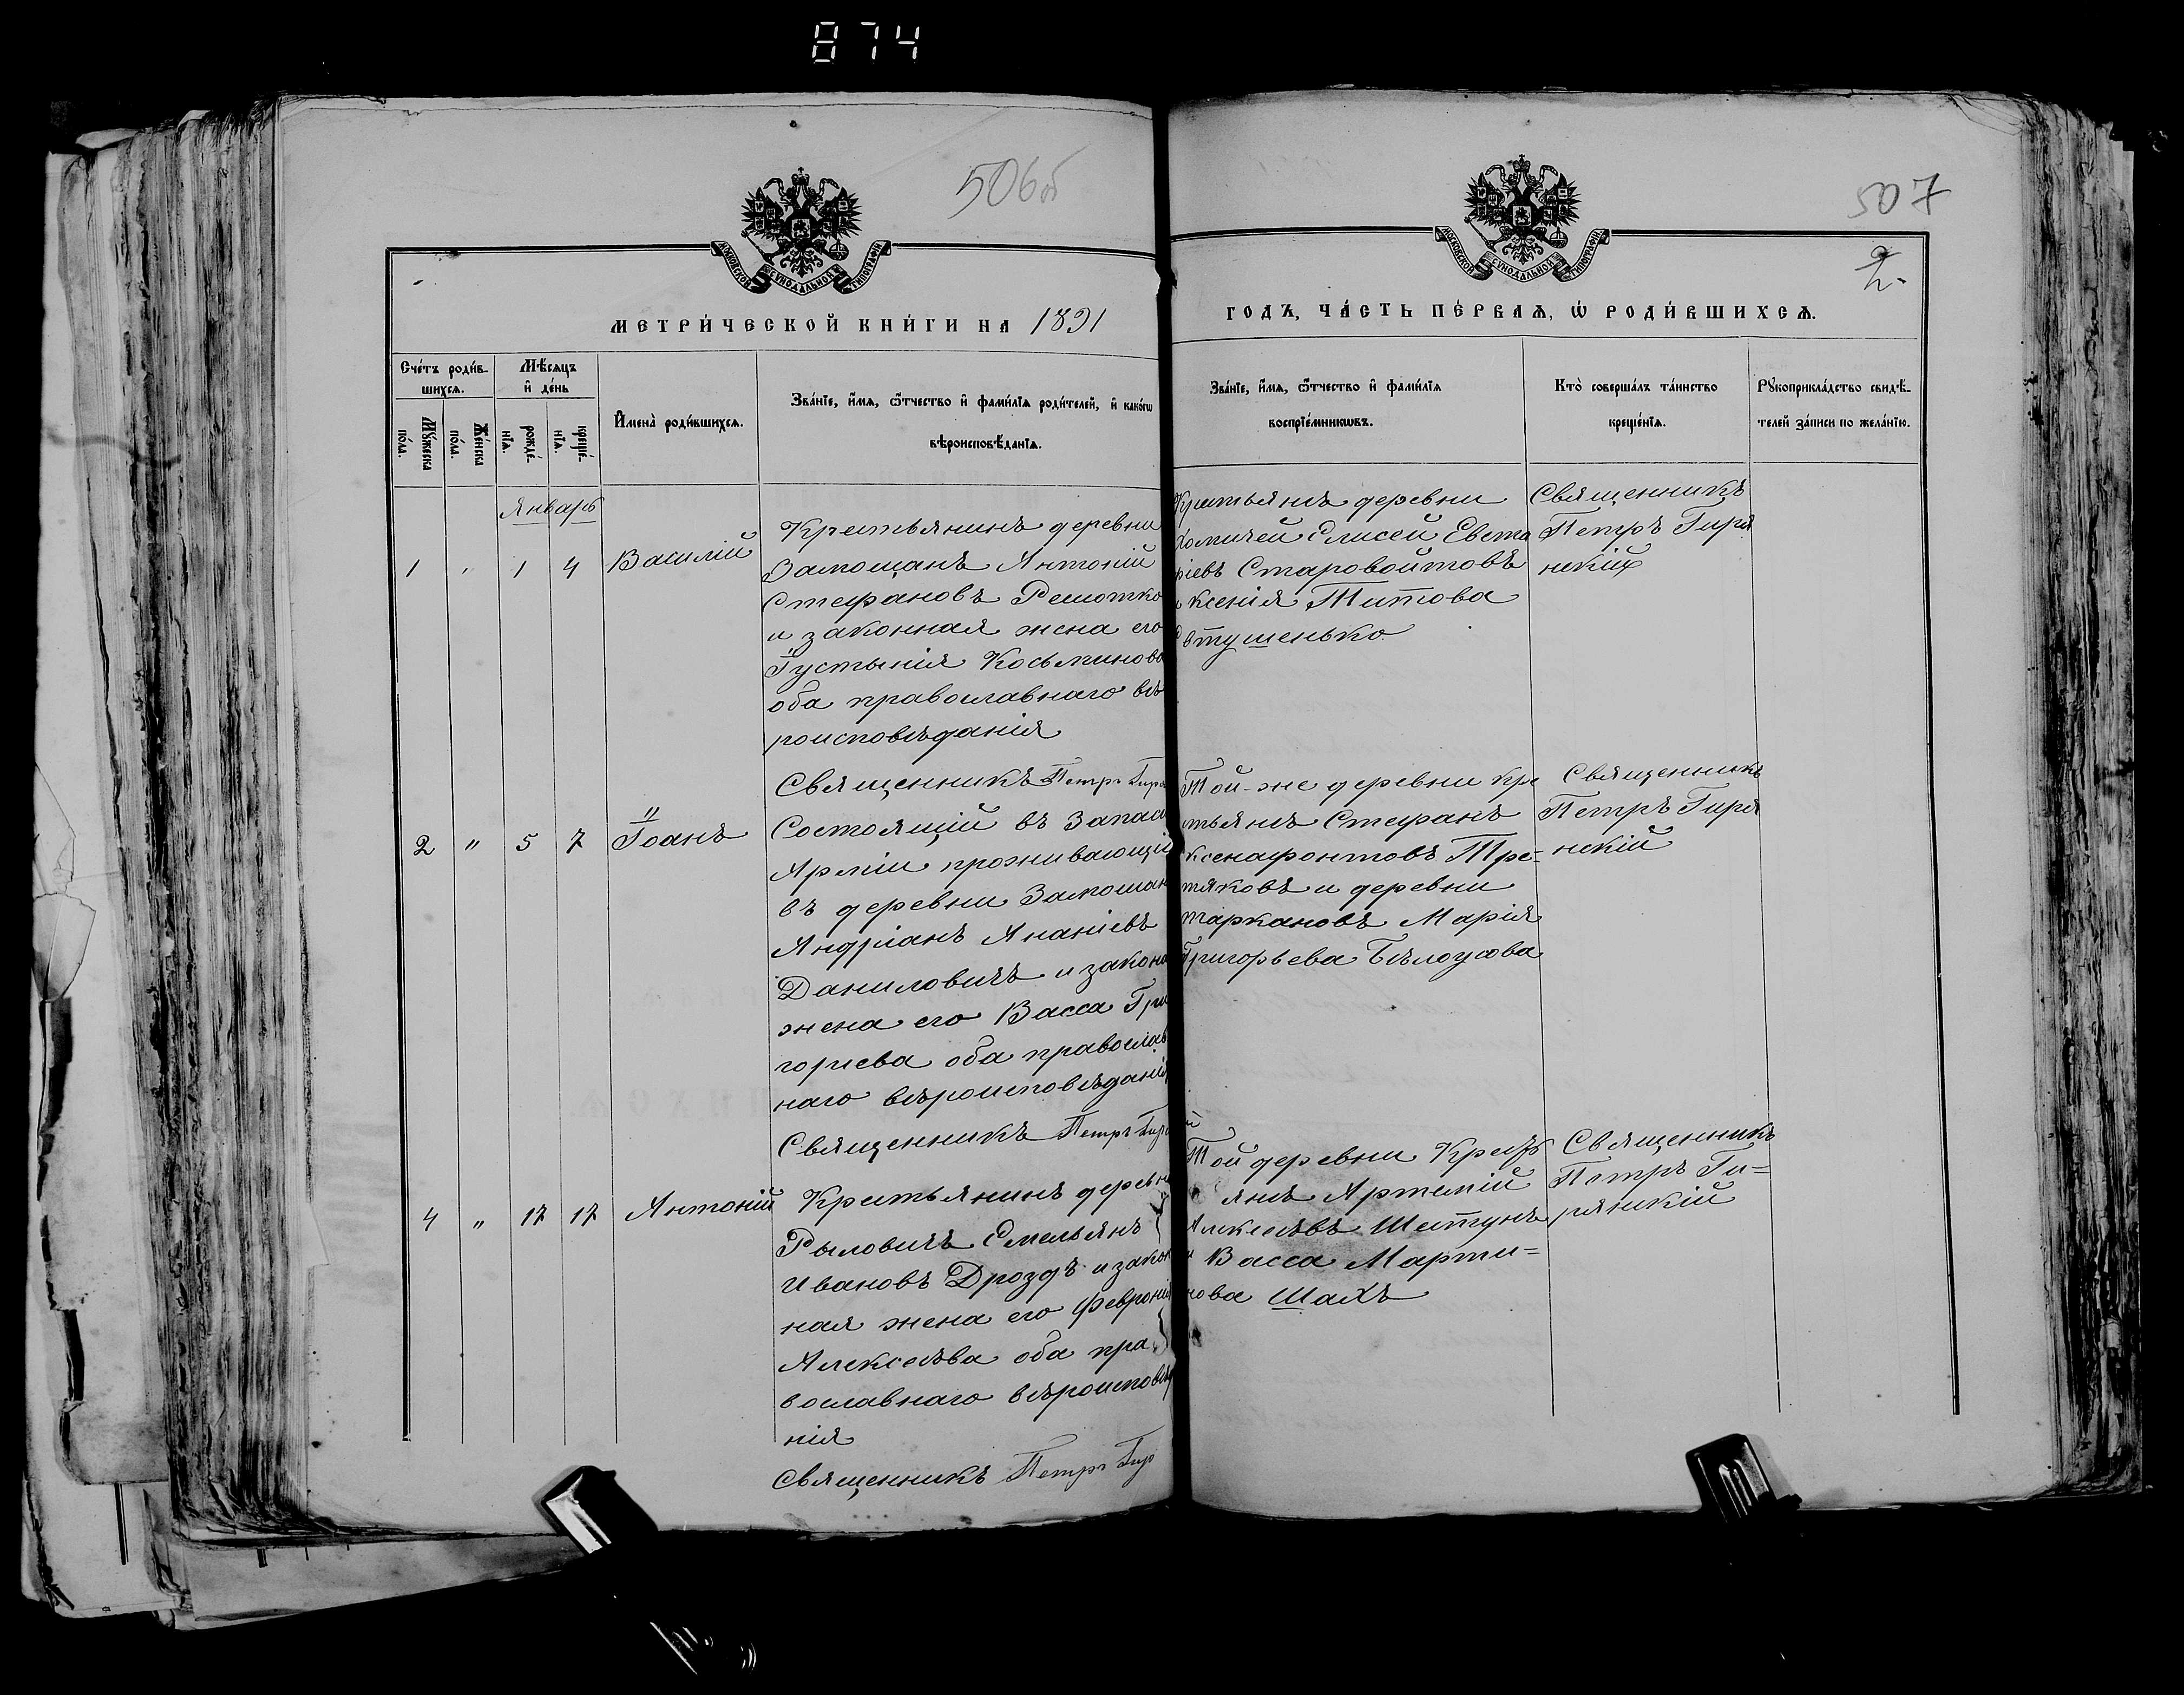 874
506об
507
2.
МОСКОВСКОЙ СУНОДАЛЬНОЙ ТИПОГРАФІИ
МОСКОВСКОЙ СУНОДАЛЬНОЙ ТИПОГРАФІИ
МЕТРИ́ЧЕСКОЙ КНИ́ГИ НА 1891
ГОДЪ, ЧА́СТЬ ПЕ́РВАѦ, Ѡ РОДИ́ВШИХСѦ.
Сче́тъ роди́в-
шихсѧ.
Мꙋ́жеска
по́ла.
Же́нска
по́ла.
Мѣ́сѧцъ
и҆ де́нь
рожде́-
нїѧ.
креще́-
нїѧ.
И҆мена̀ роди́вшихсѧ.
Зва́нїе, и҆́мѧ, ѻ҆́тчество и҆ фами́лїѧ роди́телей, и҆ како́гѡ
вѣроисповѣ́данїѧ.
Зва́нїе, и҆́мѧ, ѻ҆́тчество и҆ фами́лїѧ
воспрїе́мникѡвъ.
Кто̀ соверша́лъ та́инство
креще́нїѧ.
Рꙋкоприкла́дство свидѣ́-
телей за́писи по жела́нїю.
Январь
1 " 1 4
Василій
Крестьянинъ деревни
Замошанъ Антоній
Стефановъ Решотко
и законная жена его
Іустинія Косьминова
оба православнаго вѣ
роисповѣданія
Священникъ Петръ Гиря
Крестьянъ деревни
Хомичей Елисей Евста
фіевъ Старовойтовъ
и Ксенія Титова
Евтушенько.
Священникъ
Петръ Гиря
нскій
2 " 5 7
Іоанъ
Состоящій въ Запас
Арміи проживающій
въ деревни Замошан
Андріанъ Ананіевъ
Даниловичъ и закона
жена его Васса Гри
горіева оба православ
наго вѣроисповѣданія
Священникъ Петръ Гиря
Той-же деревни кре
тьянъ Стефанъ
Ксенафонтовъ Тре-
тяковъ и деревни
таркановъ Марія
Григорьева Бѣлоусова
Священникъ
Петръ Гиря
нскій
4 " 17 17
Антоній
Крестьянинъ деревни
Рыловичъ Емельянъ
Ивановъ Дроздъ и закон
ная жена его Февронія
Алексѣева оба пра
вославнаго вѣроисповѣд
нія
Священникъ Петръ Гир
Той деревни Крест
янъ Артемій
Алексѣевъ Шатунъ
и Васса Марти=
нова Шахъ
Священникъ
Петръ Ги=
рянскій